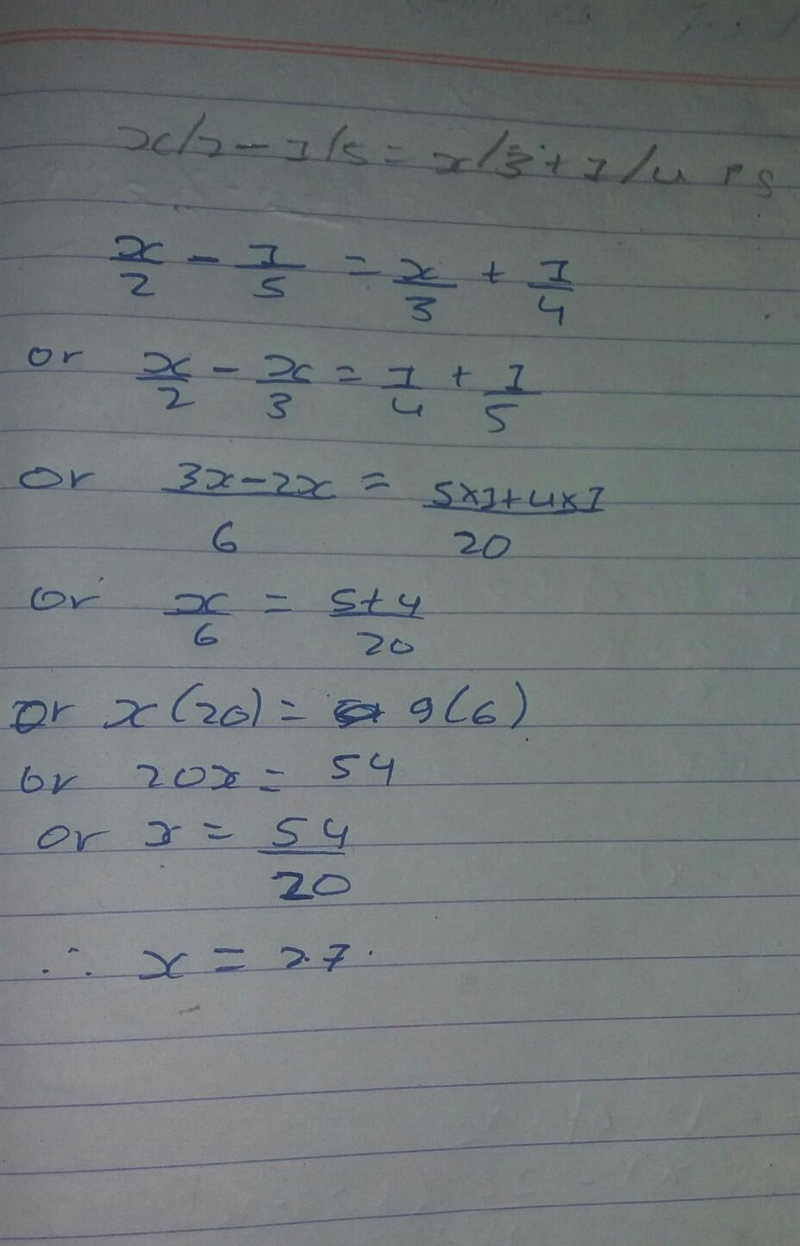 x/2 - 1/5 = x/3 + 1/4
x/2 - 1/5 = x/3 + 1/4
or x/2 - x/3 = 1/4 + 1/5
or (3x-2x)/6 = (5x1+4x1)/20
or x/6 = (5+4)/20
or x(20) = 9(6)
or 20x = 54
or x = 54/20
∴ x = 2.7.